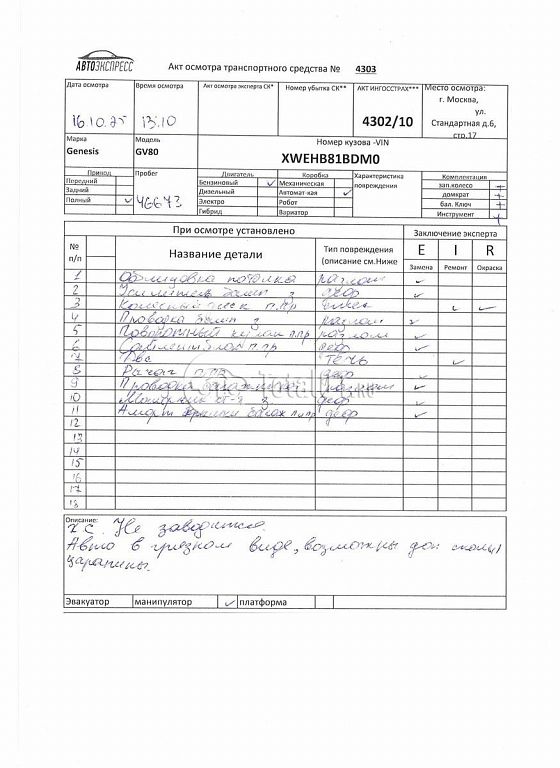 АВТОЭКСПРЕСС
Акт осмотра транспортного средства № 4303
Дата осмотра Время осмотра Акт осмотра эксперта СК* Номер убытка СК** АКТ ИНГОССТРАХ*** Место осмотра:
г. Москва,
ул.
Стандартная д.6,
стр.17
16.10.25 13:10 4302/10
Марка Модель Номер кузова -VIN
Genesis GV80 XWEHB81BDM0
Привод Пробег Двигатель Коробка Характеристика повреждения Комплектация
Передний Бензиновый ✓ Механическая зап.колесо +
Задний Дизельный Автомат-кая ✓ домкрат +
Полный ✓ 46673 Электро Робот бал. Ключ +
Гибрид Вариатор Инструмент +
При осмотре установлено Заключение эксперта
№ п/п Название детали Тип повреждения (описание см.Ниже E I R
Замена Ремонт Окраска
1 Облицовка потолка разлом ✓
2 Усилитель бамп з деф ✓
3 Колесный диск п.пр ✓ ✓
4 Проводка бамп з разлом ✓
5 Поворотный кулак п.пр разлом ✓
6 п.пр деф ✓
7 Двс течь ✓
8 Рычаг деф ✓
9 Проводка разлом ✓
10 з деф ✓
11 Аморт багаж п.пр деф ✓
12
13
14
15
16
17
18
Описание:
Х.С. Не заводится.
Авто в грязном виде, возможны доп сколы,
царапины.
Эвакуатор манипулятор ✓ платформа